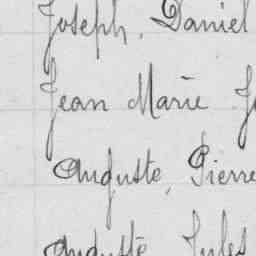 Joseph, Daniel
Jean Marie
Auguste, Pierre
Auguste Jules